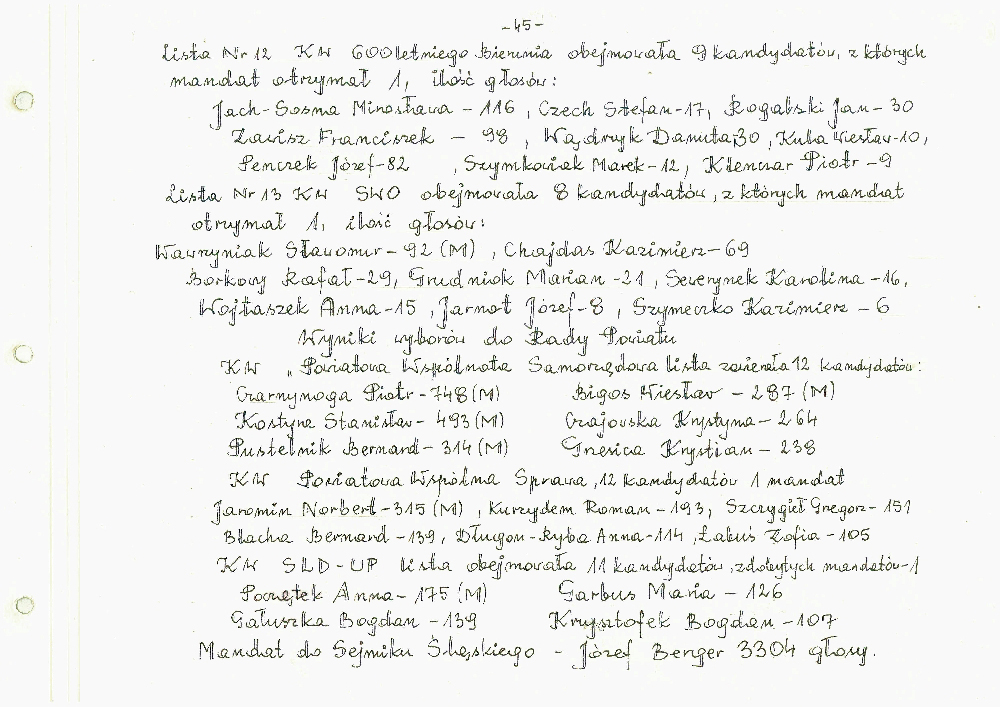 -45-
Lista Nr 12 KW 600letniego Bierunia obejmowała 9 kandydatów, z których
mandat otrzymał 1, ilość głosów:
Jach-Sosna Mirosława - 116, Czech Stefan-17, Rogalski Jan-30
Zawisz Franciszek - 98, Wądrzyk Danuta,30, Kula Wiesław-10,
Penczek Józef-82, Szymkowiak Marek-12, Klencar Piotr-9
Lista Nr 13 KW SWO obejmowała 8 kandydatów, z których mandat
otrzymał 1, ilość głosów:
Wawrzyniak Sławomir-92 (M), Chajdas Kazimierz-69
Borkowy Rafał-29, Grudniok Marian-21, Sewerynek Karolina-16,
Wojtaszek Anna-15, Jarnot Józef-8, Szymeczko Kazimierz - 6
Wyniki wyborów do Rady Powiatu
KW „Powiatowa Wspólnota Samorządowa lista zawierała 12 kandydatów:
Czarnynoga Piotr-748 (M) Bigos Wiesław - 287 (M)
Kostyra Stanisław- 493 (M) Czajowska Krystyna - 264
Pustelnik Bernard - 314 (M) Grzesica Krystian - 238
KW Powiatowa Wspólna Sprawa, 12 kandydatów 1 mandat
Jaromin Norbert-315 (M), Kurzydem Roman-193, Szczygieł Grzegorz-151
Blacha Bernard -139, Długoń-Ryba Anna-114, Labuś Zofia-105
KW SLD-UP lista obejmowała 11 kandydatów, zdobytych mandatów-1
Początek Anna-175 (M) Garbus Maria - 126
Gałuszka Bogdan - 139 Krzysztofek Bogdan -107
Mandat do Sejmiku Śląskiego - Józef Berger 3304 głosy.